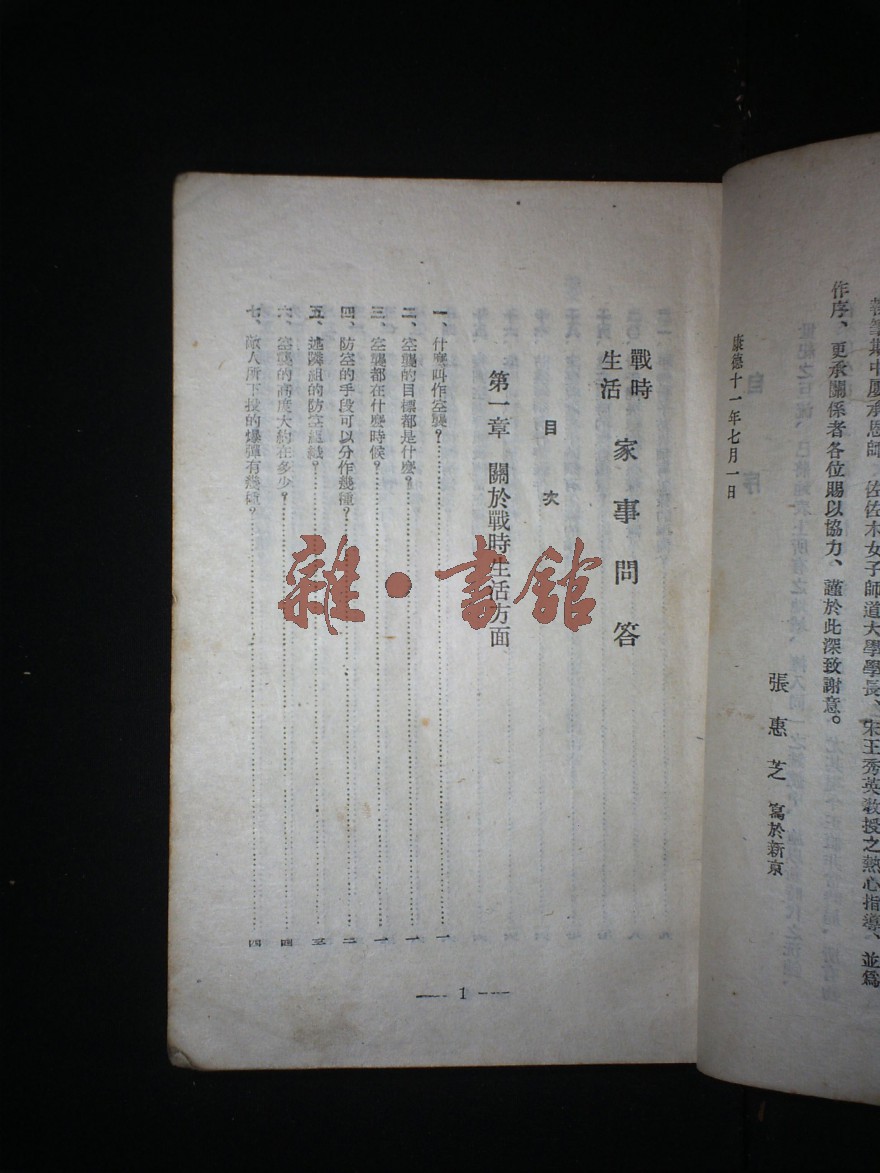 作序、更承關係者各位賜以協力、謹於此深致謝意。
康德十一年七月一日
張惠芝 寫於新京
自序
戰時
生活
家事問答
目次
第一章 關於戰時生活方面
一、什麼叫作空襲?一
二、空襲的目標都是什麼?一
三、空襲都在什麼時候?一
四、防空的手段可以分作幾種?二
五、述隣組的防空組織?
六、空襲的高度大約在多少?四
七、敵人所下投的爆彈有幾種?四
— 1 —
雜·書館